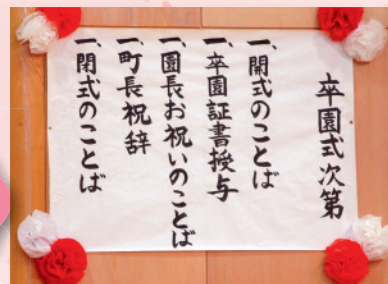 卒園式次第
一、開式のことば
一、卒園証書授与
一、園長お祝いのことば
一、町長祝辞
一、閉式のことば